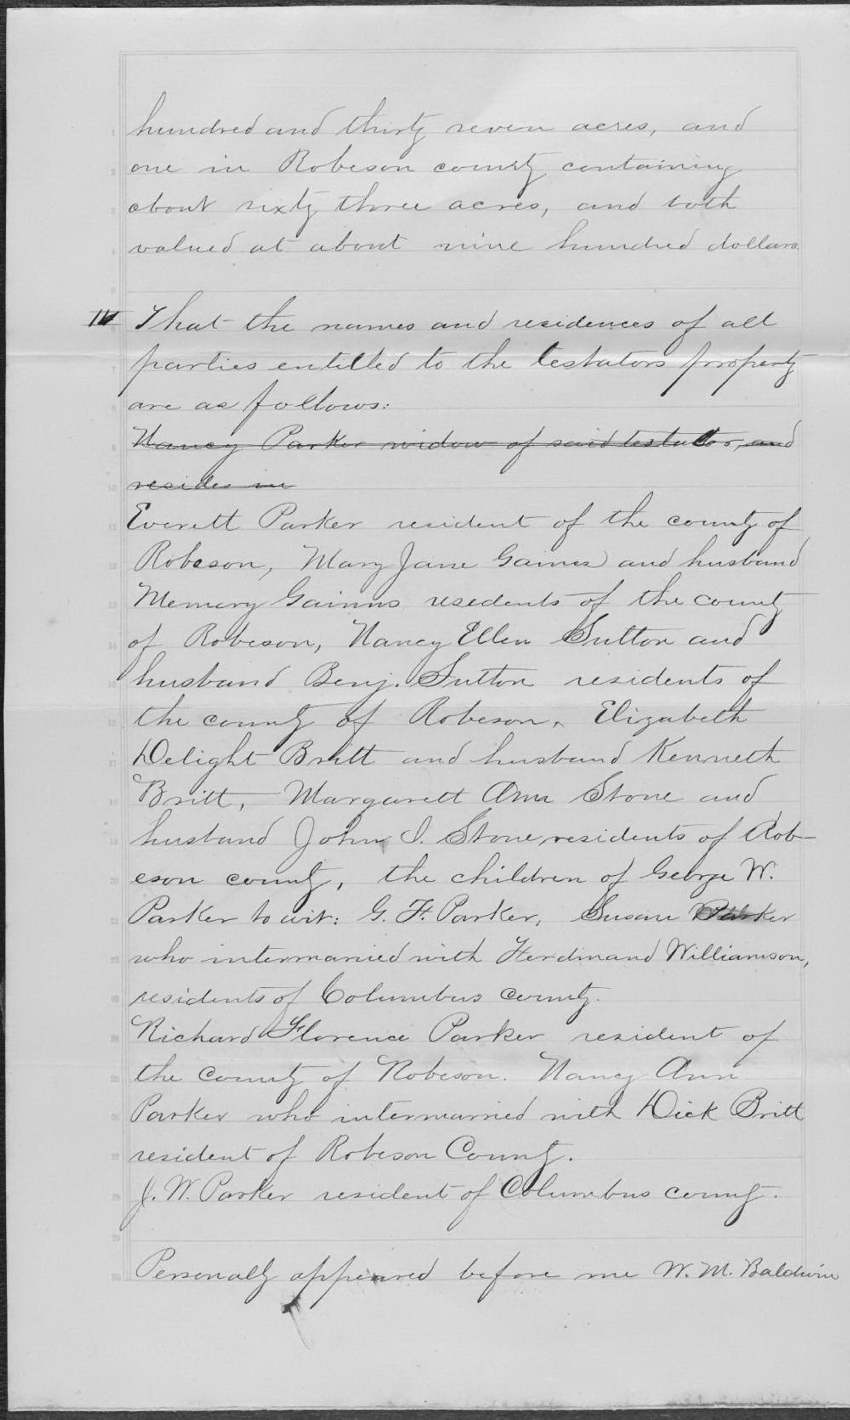 hundred and thirty seven acres, and
one in Robeson county containing
about sixty three acres, and both
valued at about nine hundred dollars
That the names and residences of all
parties entitled to the testators property
are as follows:
Nancy Parker widow of said testator, and
resides in
Everett Parker resident of the county of
Robeson, Mary Jane Gaines and husband
Memory Gainns resedents of the county
of Robeson, Nancy Ellen Sutton and
husband Benj. Sutton residents of
the county of Robeson, Elizabeth
Delight Britt and husband Kenneth
Britt, Margarett Ann Stone and
husband John I. Stone, residents of Rob-
eson county, the children of George W.
Parker to wit: G. F. Parker, Susan Parker
who intermarried with Ferdinand Williamson,
residents of Columbus county.
Richard Florence Parker resident of
the county of Robeson. Nancy Ann
Parker who intermarried with Dick Britt
resident of Robeson County.
J. W. Parker resident of Columbus county.
Personally appeared before me W. M. Baldwin